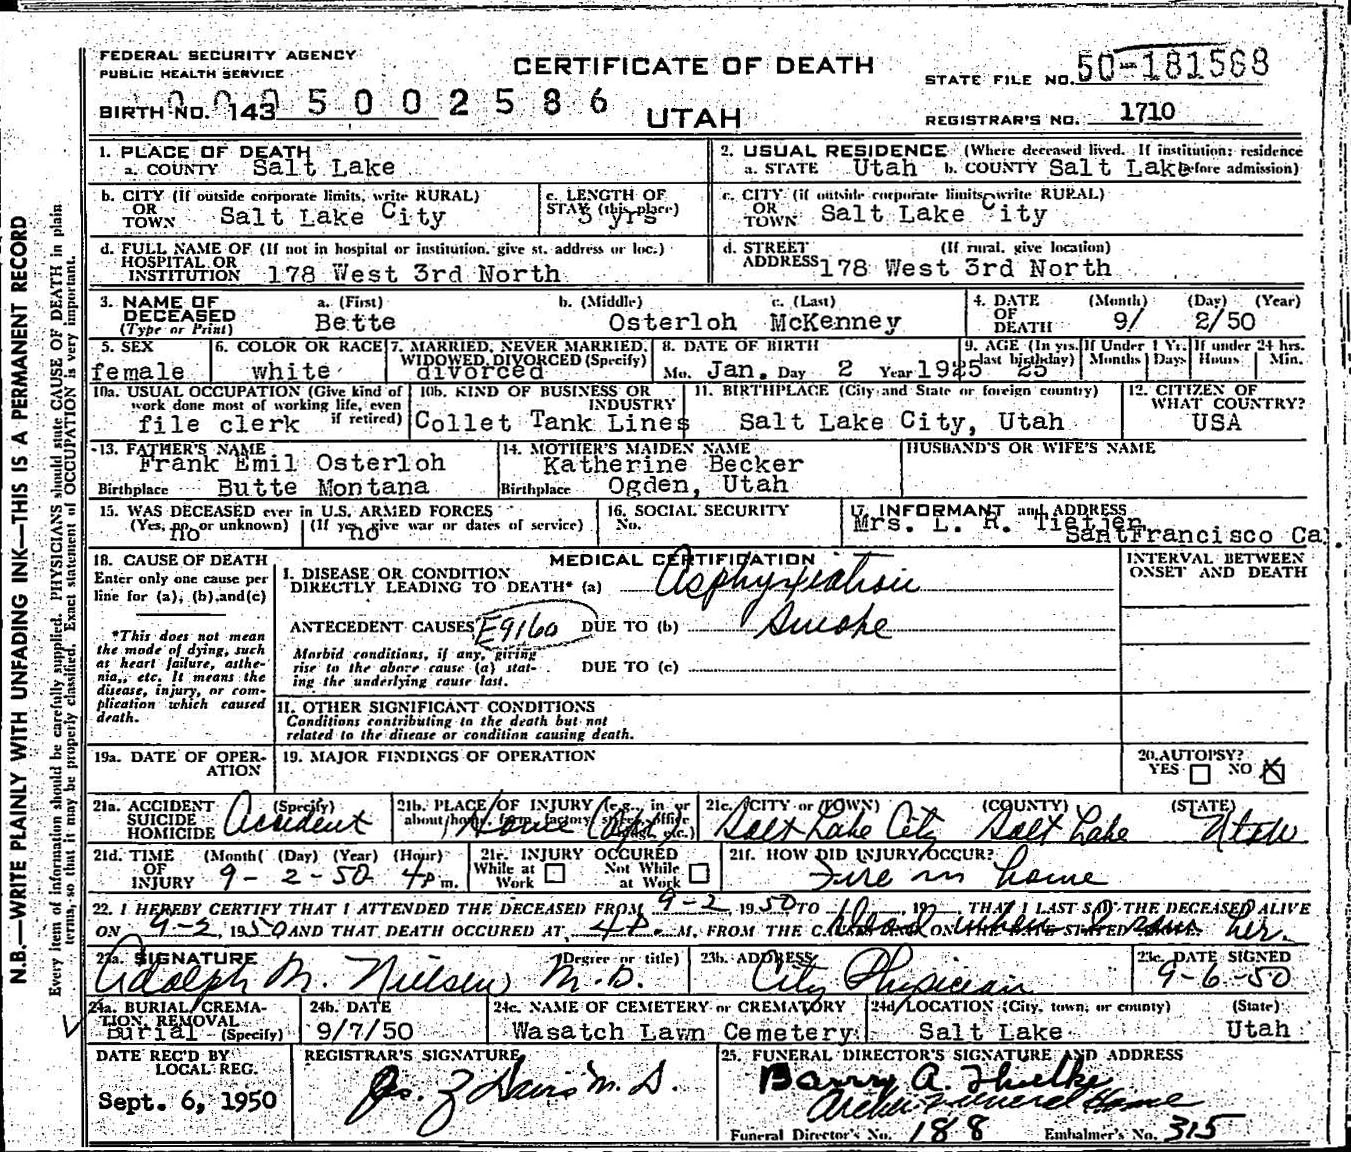 FEDERAL SECURITY AGENCY
PUBLIC HEALTH SERVICE
CERTIFICATE OF DEATH
STATE FILE NO. 50-181568
BIRTH NO. 143 0005002586
UTAH
REGISTRAR'S NO. 1710
1. PLACE OF DEATH
a. COUNTY Salt Lake
2. USUAL RESIDENCE (Where deceased lived. If institution: residence
a. STATE Utah b. COUNTY Salt Lake before admission)
b. CITY (If outside corporate limits, write RURAL)
OR
TOWN Salt Lake City
c. LENGTH OF
STAY (this place)
5 yrs
c. CITY (if outside corporate limits, write RURAL)
OR
TOWN Salt Lake City
d. FULL NAME OF (If not in hospital or institution, give st. address or loc.)
HOSPITAL OR
INSTITUTION 178 West 3rd North
d. STREET (If rural, give location)
ADDRESS 178 West 3rd North
3. NAME OF
DECEASED
(Type or Print)
a. (First) b. (Middle) c. (Last)
Bette Osterloh McKenney
4. DATE (Month) (Day) (Year)
OF
DEATH 9/ 2/50
5. SEX
female
6. COLOR OR RACE
white
7. MARRIED, NEVER MARRIED,
WIDOWED, DIVORCED (Specify)
divorced
8. DATE OF BIRTH
Mo. Jan. Day 2 Year 1925
9. AGE (In yrs. last birthday) 25
If Under 1 Yr. Months Days
If under 24 hrs. Hours Min.
10a. USUAL OCCUPATION (Give kind of
work done most of working life, even
if retired)
file clerk
10b. KIND OF BUSINESS OR
INDUSTRY
Collet Tank Lines
11. BIRTHPLACE (City and State or foreign country)
Salt Lake City, Utah
12. CITIZEN OF
WHAT COUNTRY?
USA
13. FATHER'S NAME
Frank Emil Osterloh
Birthplace Butte Montana
14. MOTHER'S MAIDEN NAME
Katherine Becker
Birthplace Ogden, Utah
HUSBAND'S OR WIFE'S NAME
15. WAS DECEASED ever in U.S. ARMED FORCES
(Yes, no, or unknown) (If yes, give war or dates of service)
no no
16. SOCIAL SECURITY
No.
17. INFORMANT and ADDRESS
Mrs. L. H. Tietjen
San Francisco Ca.
18. CAUSE OF DEATH
Enter only one cause per
line for (a), (b), and (c)
*This does not mean
the mode of dying, such
as heart failure, asthe-
nia, etc. It means the
disease, injury, or com-
plication which caused
death.
MEDICAL CERTIFICATION
I. DISEASE OR CONDITION
DIRECTLY LEADING TO DEATH* (a) Asphyxiation
ANTECEDENT CAUSES E9160 DUE TO (b) Smoke
Morbid conditions, if any, giving
rise to the above cause (a) stat-
ing the underlying cause last.
DUE TO (c)
II. OTHER SIGNIFICANT CONDITIONS
Conditions contributing to the death but not
related to the disease or condition causing death.
INTERVAL BETWEEN
ONSET AND DEATH
19a. DATE OF OPER-
ATION
19. MAJOR FINDINGS OF OPERATION
20. AUTOPSY?
YES NO X
21a. ACCIDENT (Specify)
SUICIDE
HOMICIDE
Accident
21b. PLACE OF INJURY (e.g., in or
about home, farm, factory, street, office
etc.)
Home
21c. (CITY or TOWN) (COUNTY) (STATE)
Salt Lake City Salt Lake Utah
21d. TIME (Month) (Day) (Year) (Hour)
OF
INJURY 9-2-50 4 p m.
21e. INJURY OCCURED
While at Work Not While at Work
21f. HOW DID INJURY OCCUR?
Fire in home
22. I HEREBY CERTIFY THAT I ATTENDED THE DECEASED FROM 9-2 1950 TO 19 THAT I LAST SAW THE DECEASED ALIVE
ON 9-2, 1950 AND THAT DEATH OCCURED AT 4 P. M. FROM THE CAUSES AND ON THE DATE STATED ABOVE. Dead when I saw her.
23a. SIGNATURE (Degree or title)
Adolph M. Nielsen, M.D.
23b. ADDRESS
City Physician
23c. DATE SIGNED
9-6-50
24a. BURIAL, CREMA-
TION, REMOVAL
Burial (Specify)
24b. DATE
9/7/50
24c. NAME OF CEMETERY or CREMATORY
Wasatch Lawn Cemetery
24d. LOCATION (City, town, or county) (State)
Salt Lake Utah
DATE REC'D BY
LOCAL REG.
Sept. 6, 1950
REGISTRAR'S SIGNATURE
Jos. Z Davis M.D.
25. FUNERAL DIRECTOR'S SIGNATURE AND ADDRESS
Barry A.
Funeral Home
Funeral Director's No. 188 Embalmer's No. 315
N.B.—WRITE PLAINLY WITH UNFADING INK—THIS IS A PERMANENT RECORD
Every item of information should be carefully supplied. PHYSICIANS should state CAUSE OF DEATH in plain
terms, so that it may be properly classified. Exact statement of OCCUPATION is very important.